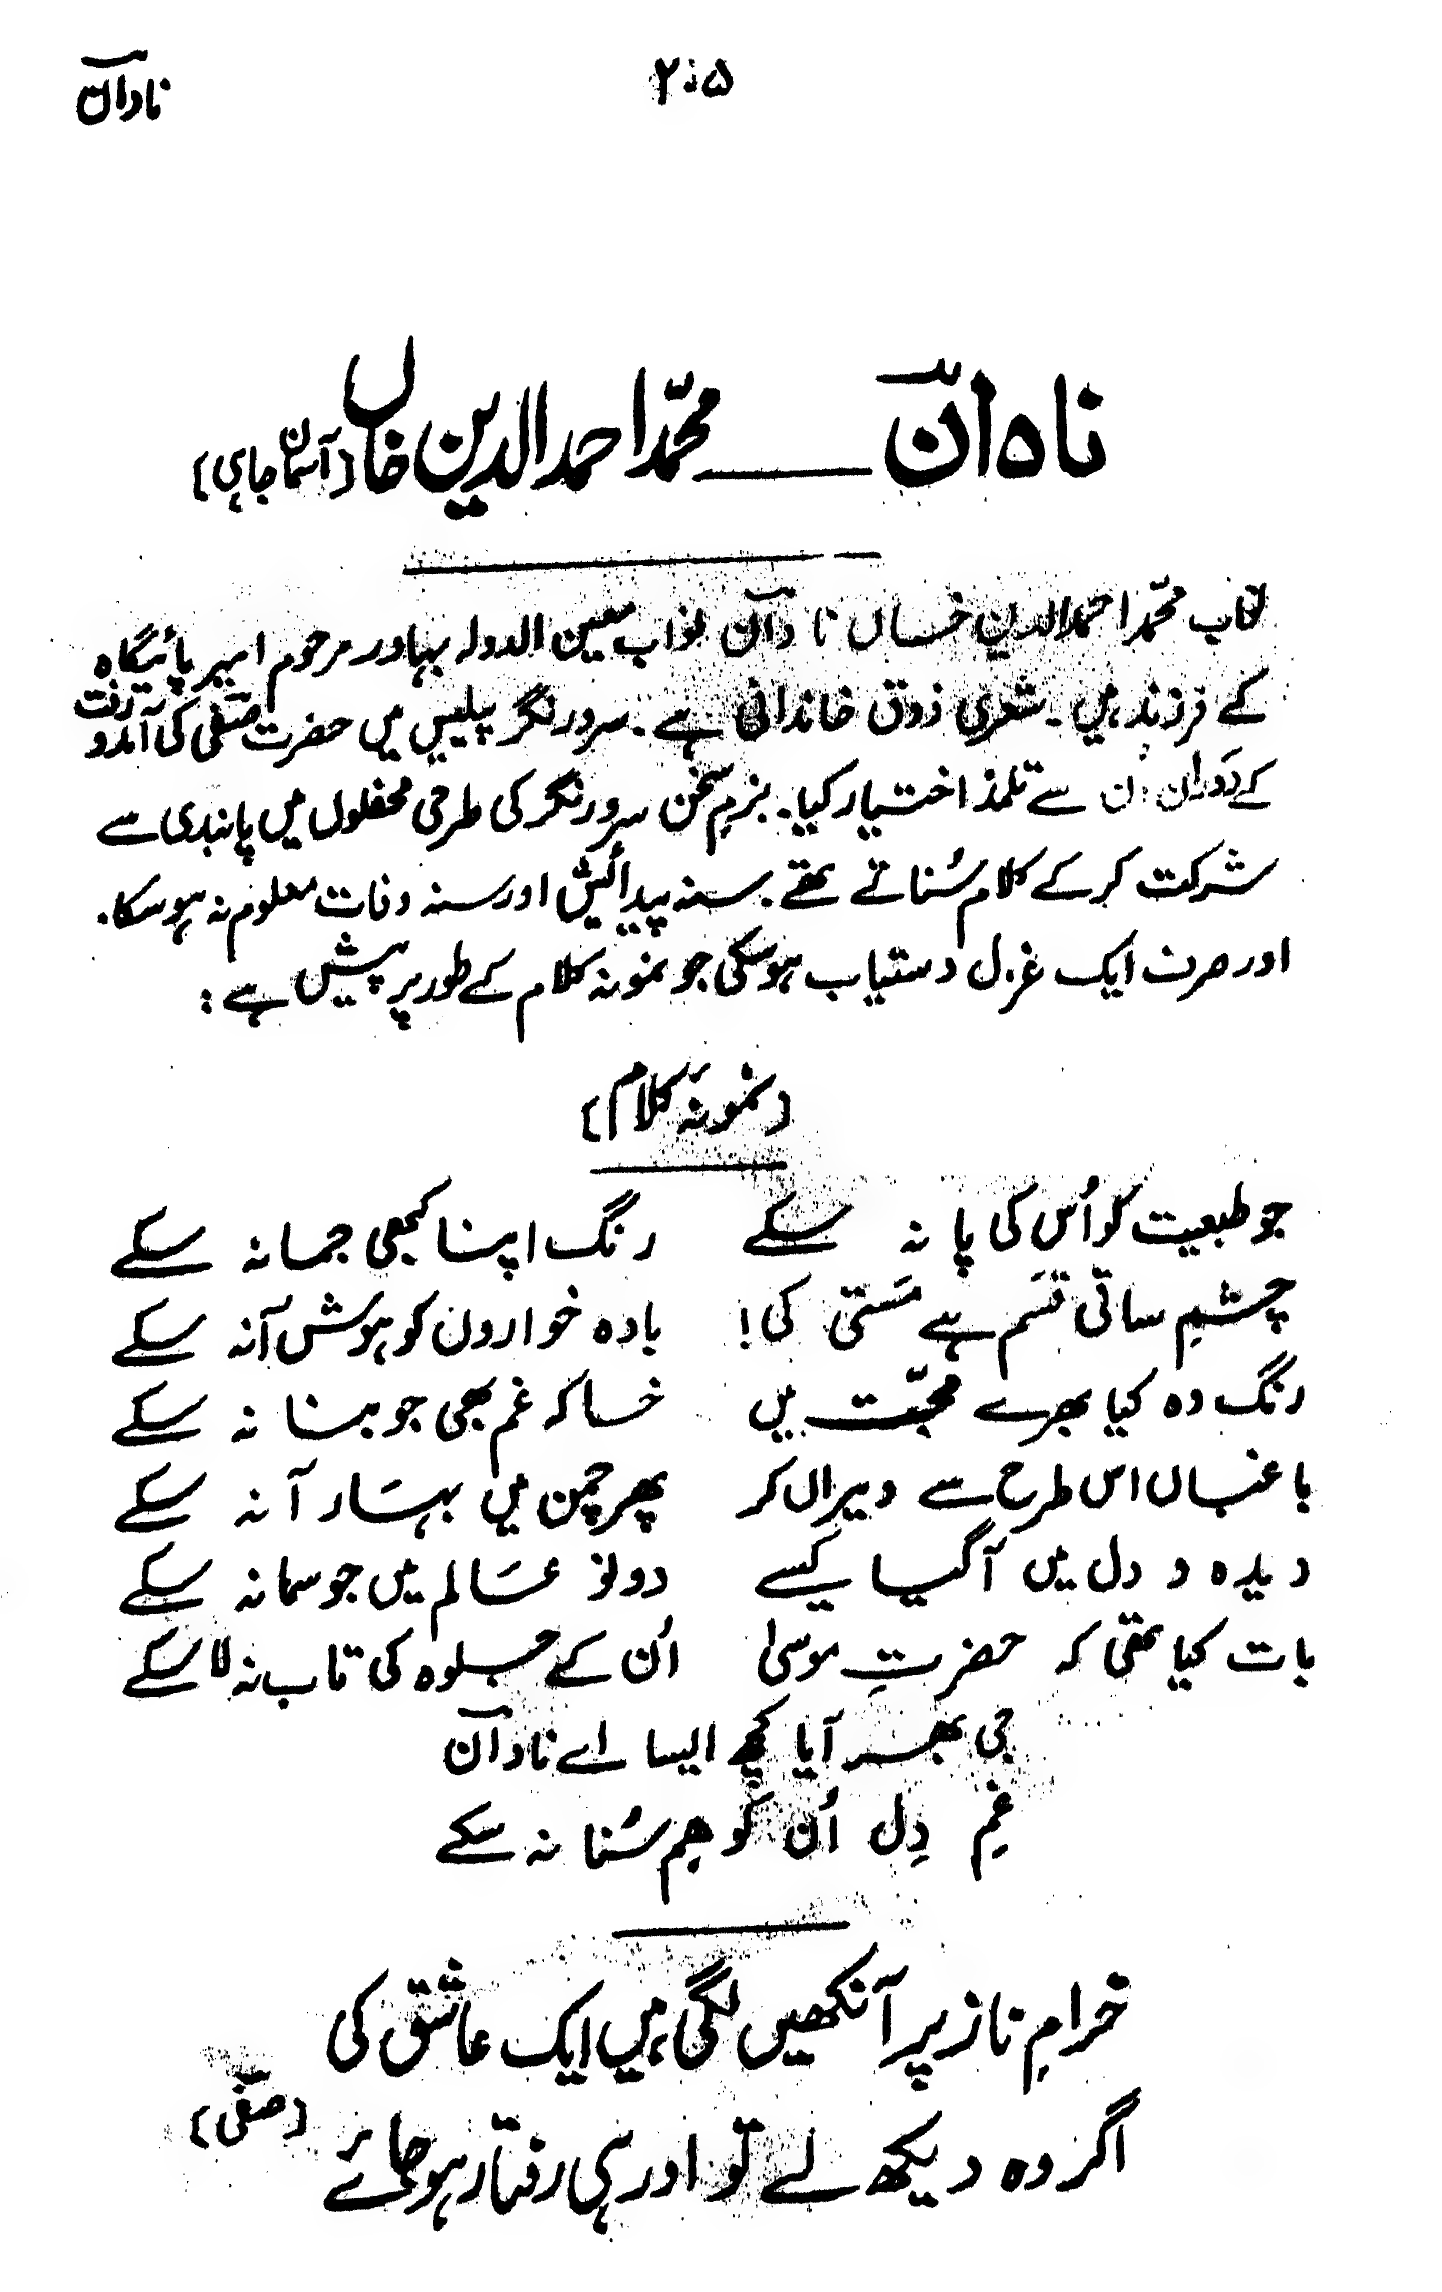 نادان
۲۰۵
نادان ــــــ محمّد احمد الدین خاں (آسمان جاہی)
نواب محمّد احمد الدین خاں نادان نواب معین الدولہ بہادر مرحوم امیر پائیگاہ
کے فرزند ہیں۔ شعری ذوق خاندانی ہے۔ سرور نگر پیلیس میں حضرت صفی کی آمد و رفت
کے دَوران اُن سے تلمذ اختیار کیا۔ بزمِ سخن سرور نگر کی طرحی محفلوں میں پابندی سے
شرکت کر کے کلام سُناتے تھے۔ سنہ پیدائیش اور سنہ وفات معلوم نہ ہو سکا۔
اور صرف ایک غزل دستیاب ہو سکی جو نمونہ کلام کے طور پر پیش ہے :
(نمونہ کلام)
جو طبعیت کو اُس کی پا نہ سکے رنگ اپنا کبھی جما نہ سکے
چشمِ ساقی قسَم ہے مَستی کی! بادہ خواروں کو ہوش آ نہ سکے
رنگ وہ کیا بھرے محبّت میں خاکہ غم بھی جو بنا نہ سکے
باغباں اس طرح سے ویراں کر پھر چمن میں بہَار آ نہ سکے
دیدہ و دل میں آگیا کیسے دونو عَالم میں جو سما نہ سکے
بات کیا تھی کہ حضرتِ موسیٰ اُن کے جلوہ کی تاب نہ لا سکے
جی بھر آیا کچھ ایسا اے نادان
غمِ دِل اُن کو ہم سُنا نہ سکے
خرامِ ناز پر آنکھیں لگی ہیں ایک عاشق کی
اگر وہ دیکھ لے تو اور ہی رفتار ہو جائے (صفی)